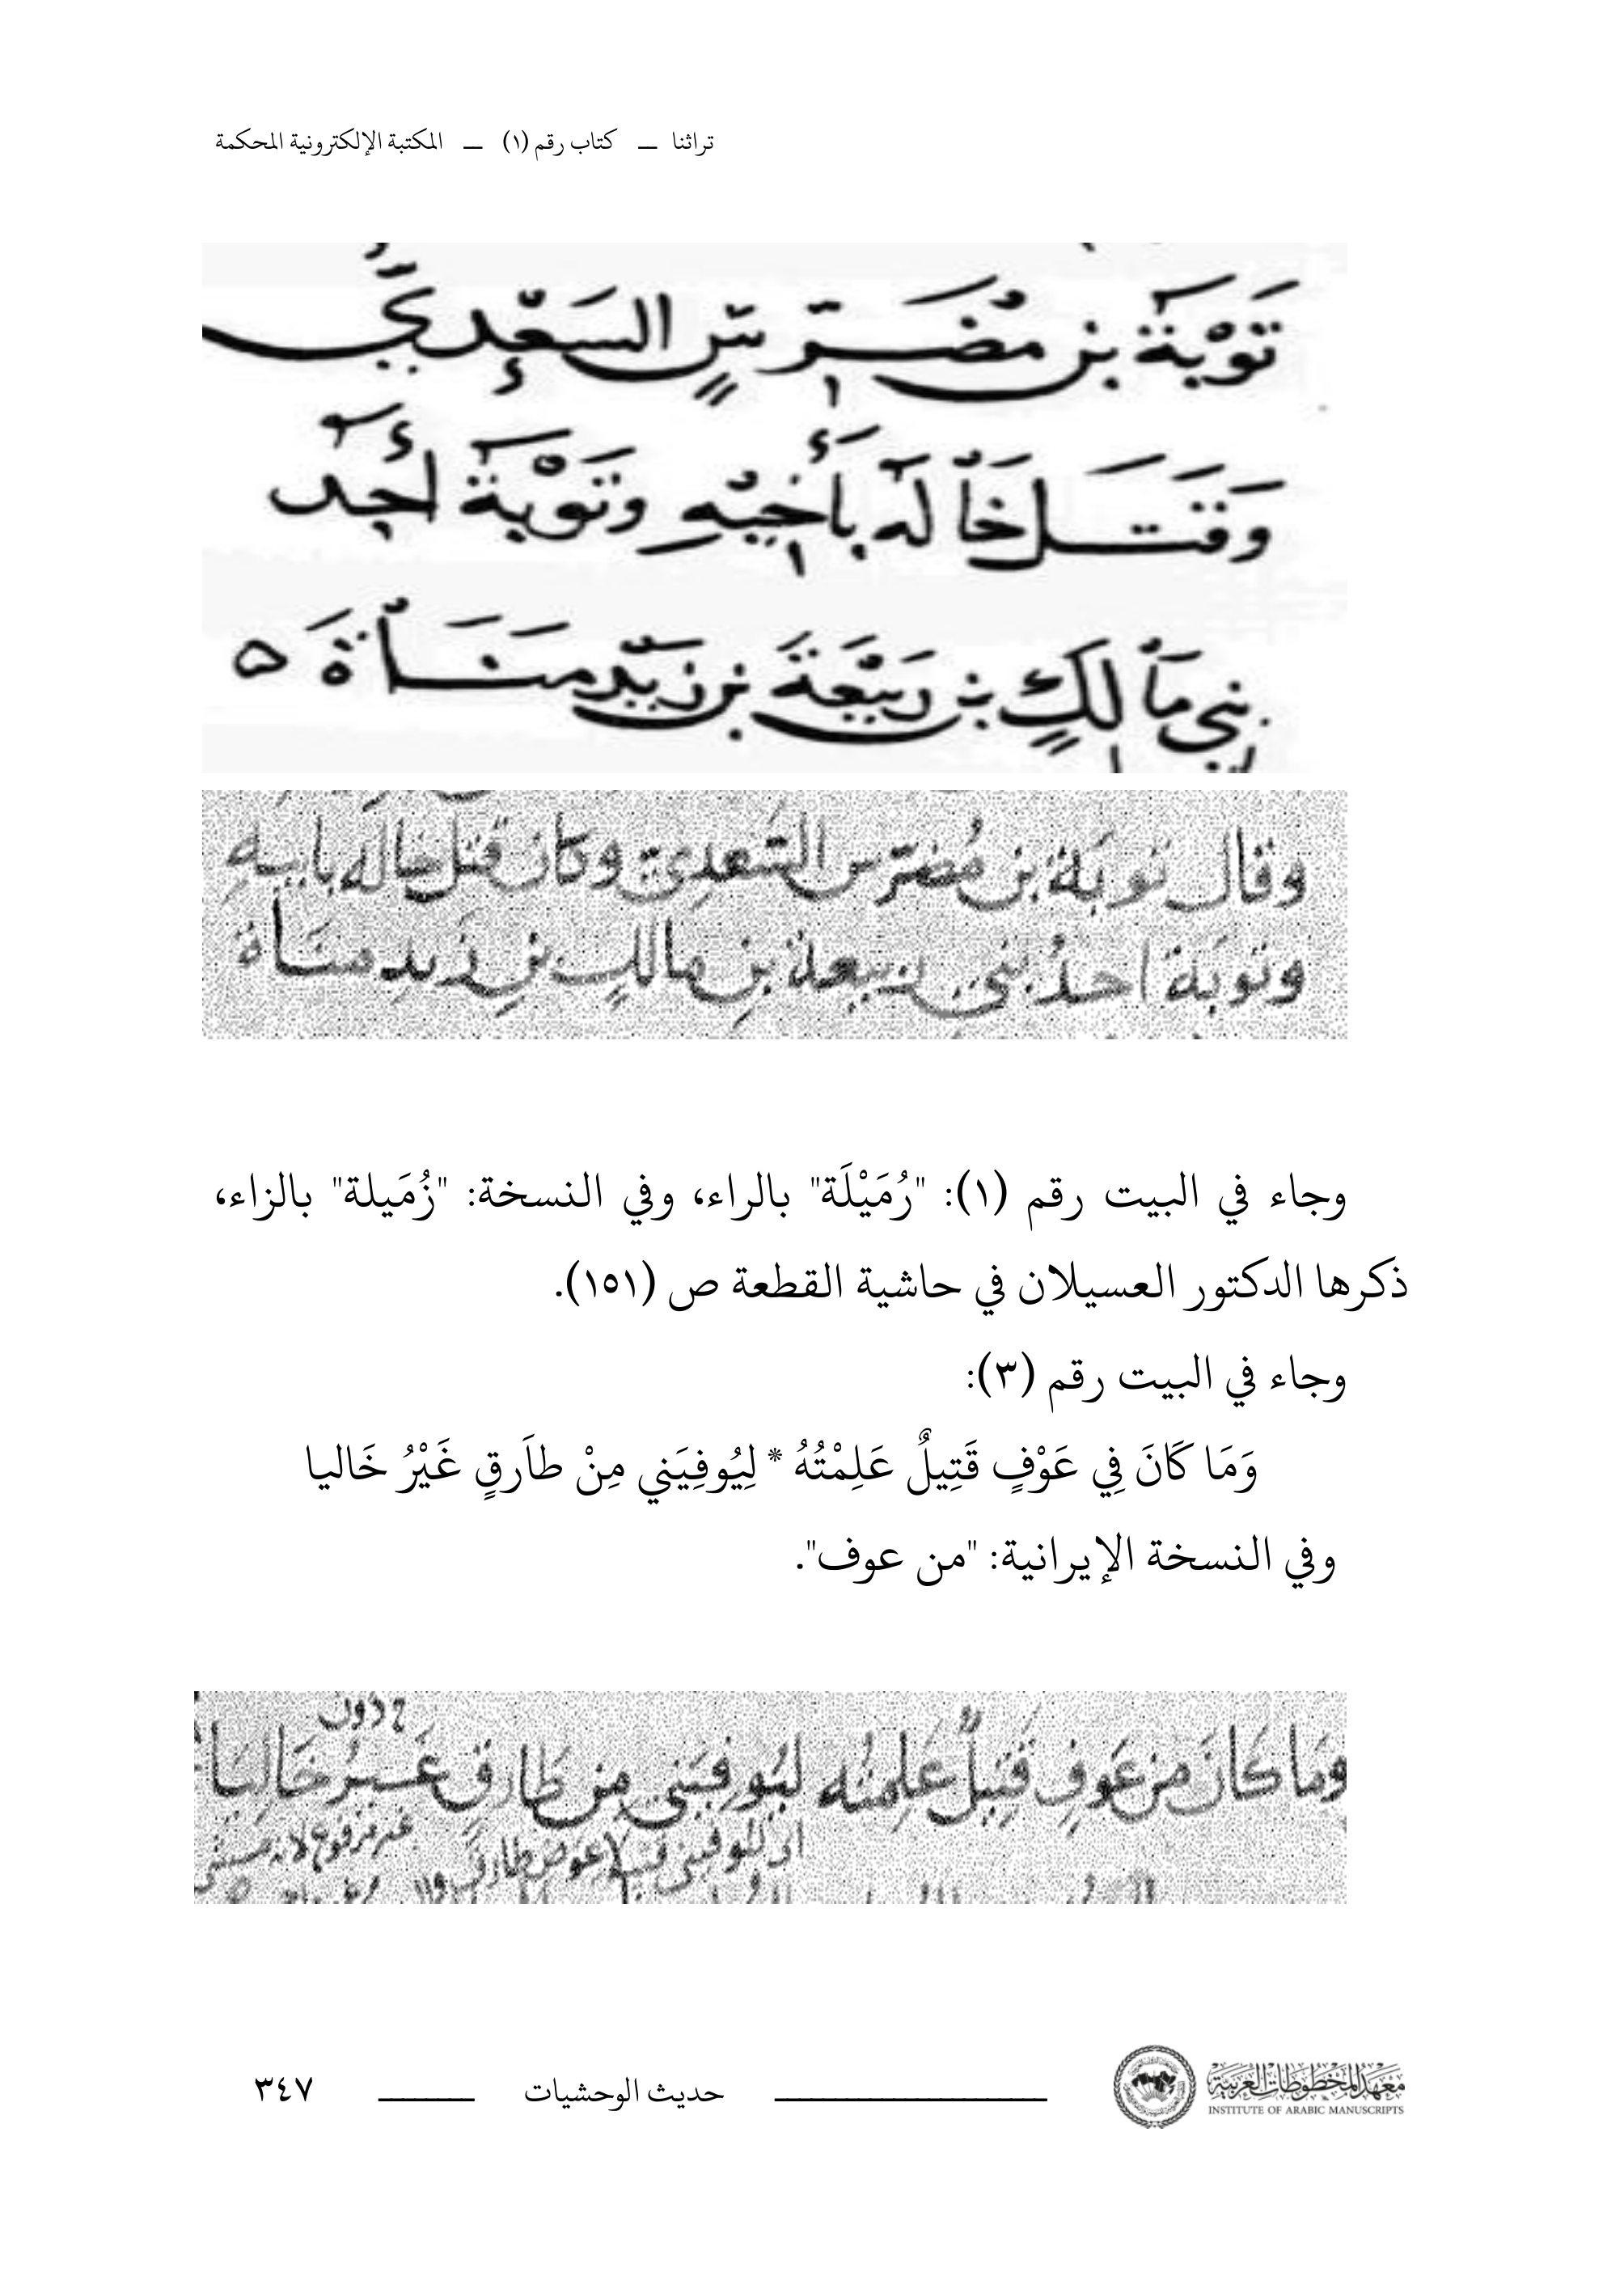 تراثنا — كتاب رقم (١) — المكتبة الإلكترونية المحكمة
تَوْبَة بن مُضَرِّسٍ السَّعْدِيُّ
وَقَتَلَ خَالَهُ بأَخِيْهِ وتَوْبَةُ أحَدُ
بَنِي مَالِكِ بنِ رَبِيْعَةَ بنِ زَيْدِ مَنَاةَ ه
وقال توبَة بن مُضرّس السَّعدِيّ وكان قتل خاله بابيهِ
وتوبَة احدُ بني ربيعة بنِ مالكِ بنِ زَيدِ مناة
وجاء في البيت رقم (١): "رُمَيْلَة" بالراء، وفي النسخة: "زُمَيلة" بالزاء،
ذكرها الدكتور العسيلان في حاشية القطعة ص (١٥١).
وجاء في البيت رقم (٣):
وَمَا كَانَ فِي عَوْفٍ قَتِيلٌ عَلِمْتُهُ * لِيُوفِيَني مِنْ طاَرقٍ غَيْرُ خَاليا
وفي النسخة الإيرانية: "من عوف".
دون
وَمَا كَانَ مِن عَوفٍ قَتِيلٌ عَلِمتُه ليُوفِيَني مِن طَارقٍ غَيرُ خَالِيَا
عوض طارق
غير مرفوع لانه
معهد المخطوطات العربية
INSTITUTE OF ARABIC MANUSCRIPTS
حديث الوحشيات
٣٤٧